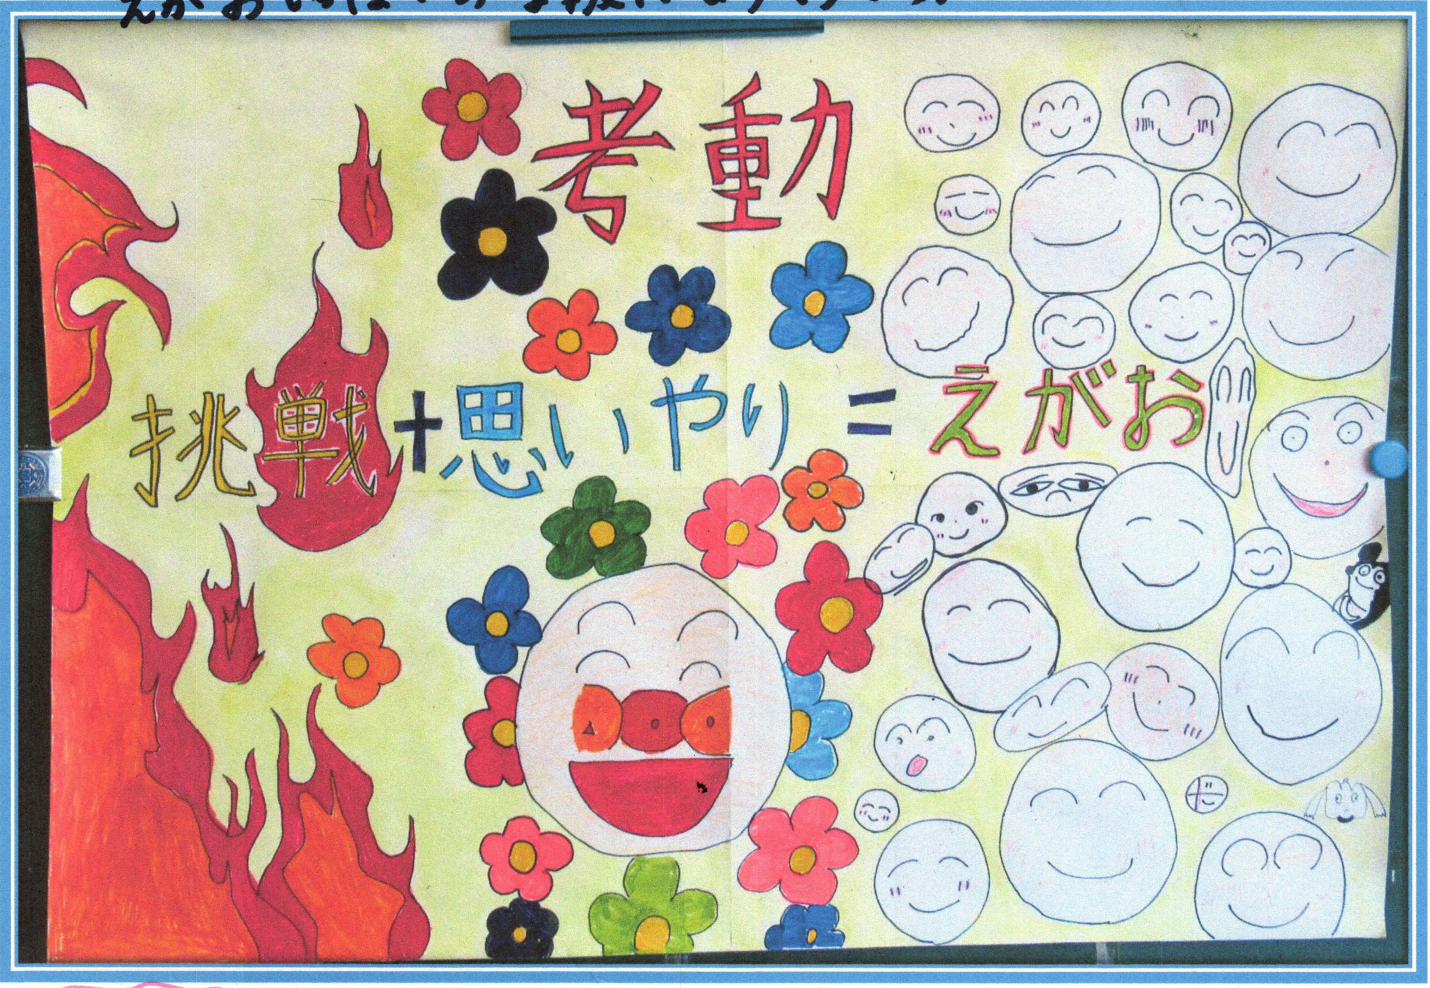 考動
挑戦+思いやり=えがお